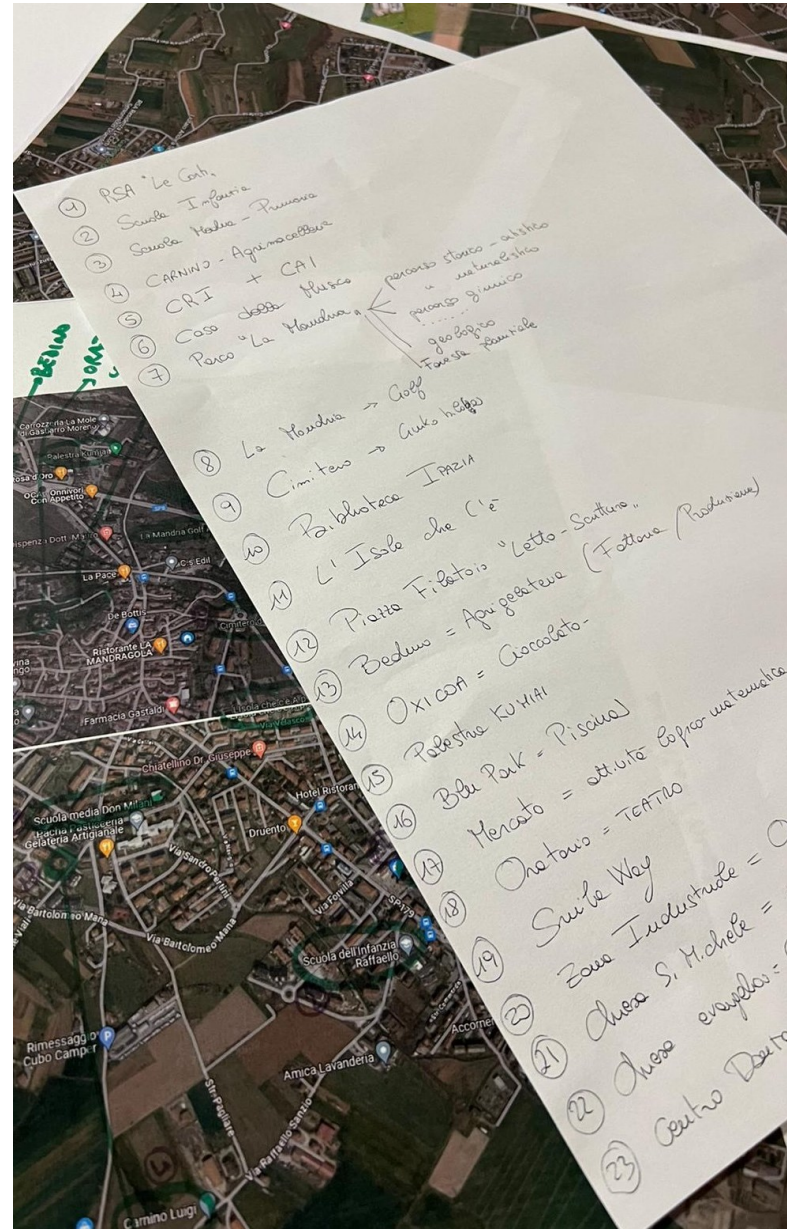 1 RSA "Le Corti"
2 Scuola Infanzia
3 Scuola Media - Primaria
4 CARNINO - Agrimacelleria
5 CRI + CAI
6 Casa della Musica
7 Parco "La Mandria"
percorso storico - artistico
" naturalistico
percorso ginnico
.......
geologico
Foresta planiziale
8 La Mandria → Golf
9 Cimitero → Ginko biloba
10 Biblioteca IPAZIA
11 L'Isola che c'è
12 Piazza Filatoio "Letto-Scrittura"
13 Bedino = Agrigelateria (Fattoria/Produzione)
14 OXICOA = Cioccolato
15 Palestra KUMIAI
16 Blu Park = Piscina
17 Mercato = attività logico-matematica
18 Oratorio = TEATRO
19 Smile Way
20 Zona Industriale =
21 Chiesa S. Michele =
22 Chiesa evangelica =
23 Centro
BEDINO
Carrozzeria La Mole
di Gasparro Moreno
Palestra Kumiai
rosa d'Oro
OCA: Onnivori
Con Appetito
ispenza Dott. Mauro
La Mandria Golf
C's Edil
La Pace
De Bottis
Cimitero
Ristorante LA
MANDRAGOLA
Farmacia Gastaldi
L'isola che c'è
Via Velasco
Chiatellino Dr. Giuseppe
Hotel Ristoran
Scuola media Don Milani
Racha Pasticceria
Gelateria Artigianale
Druento
Via Sandro Pertini
Via Forvilla
SP179
Via Bartolomeo Mana
Via Bartolomeo Mana
Scuola dell'Infanzia
Raffaello
Rimessaggio
Cubo Camper
Accorne
Amica Lavanderia
Str. Pagliare
Via Raffaello Sanzio
Carnino Luigi